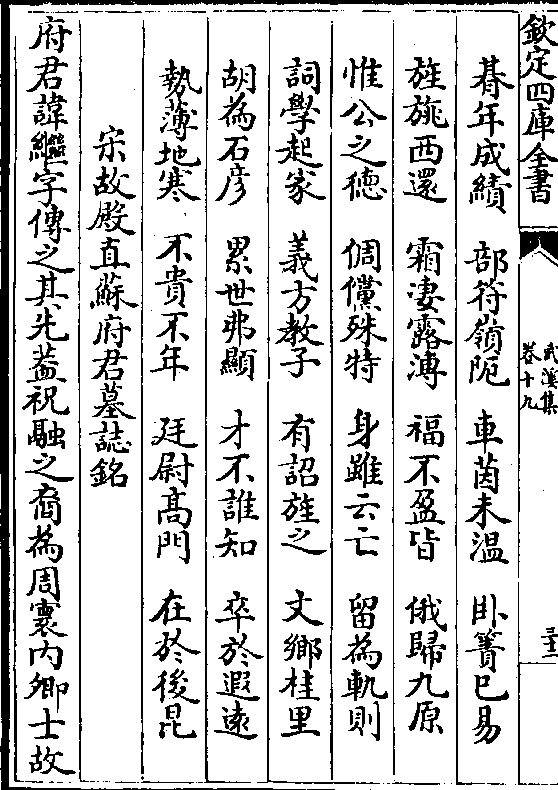 欽定四庫全書
武溪集
卷十九
二十二
朞年成績　部符嶺阨　車茵未温　卧簀已易
旌旐西還　霜凄露溥　福不盈眥　俄歸九原
惟公之德　倜儻殊特　身雖云亡　留為軌則
詞學起家　義方教子　有詔旌之　文鄉桂里
胡為石彦　累世弗顯　才不誰知　卒於遐遠
勢薄地寒　不貴不年　廷尉髙門　在於後昆
宋故殿直蘇府君墓誌銘
府君諱繼字傳之其先葢祝融之裔為周寰内卿士故